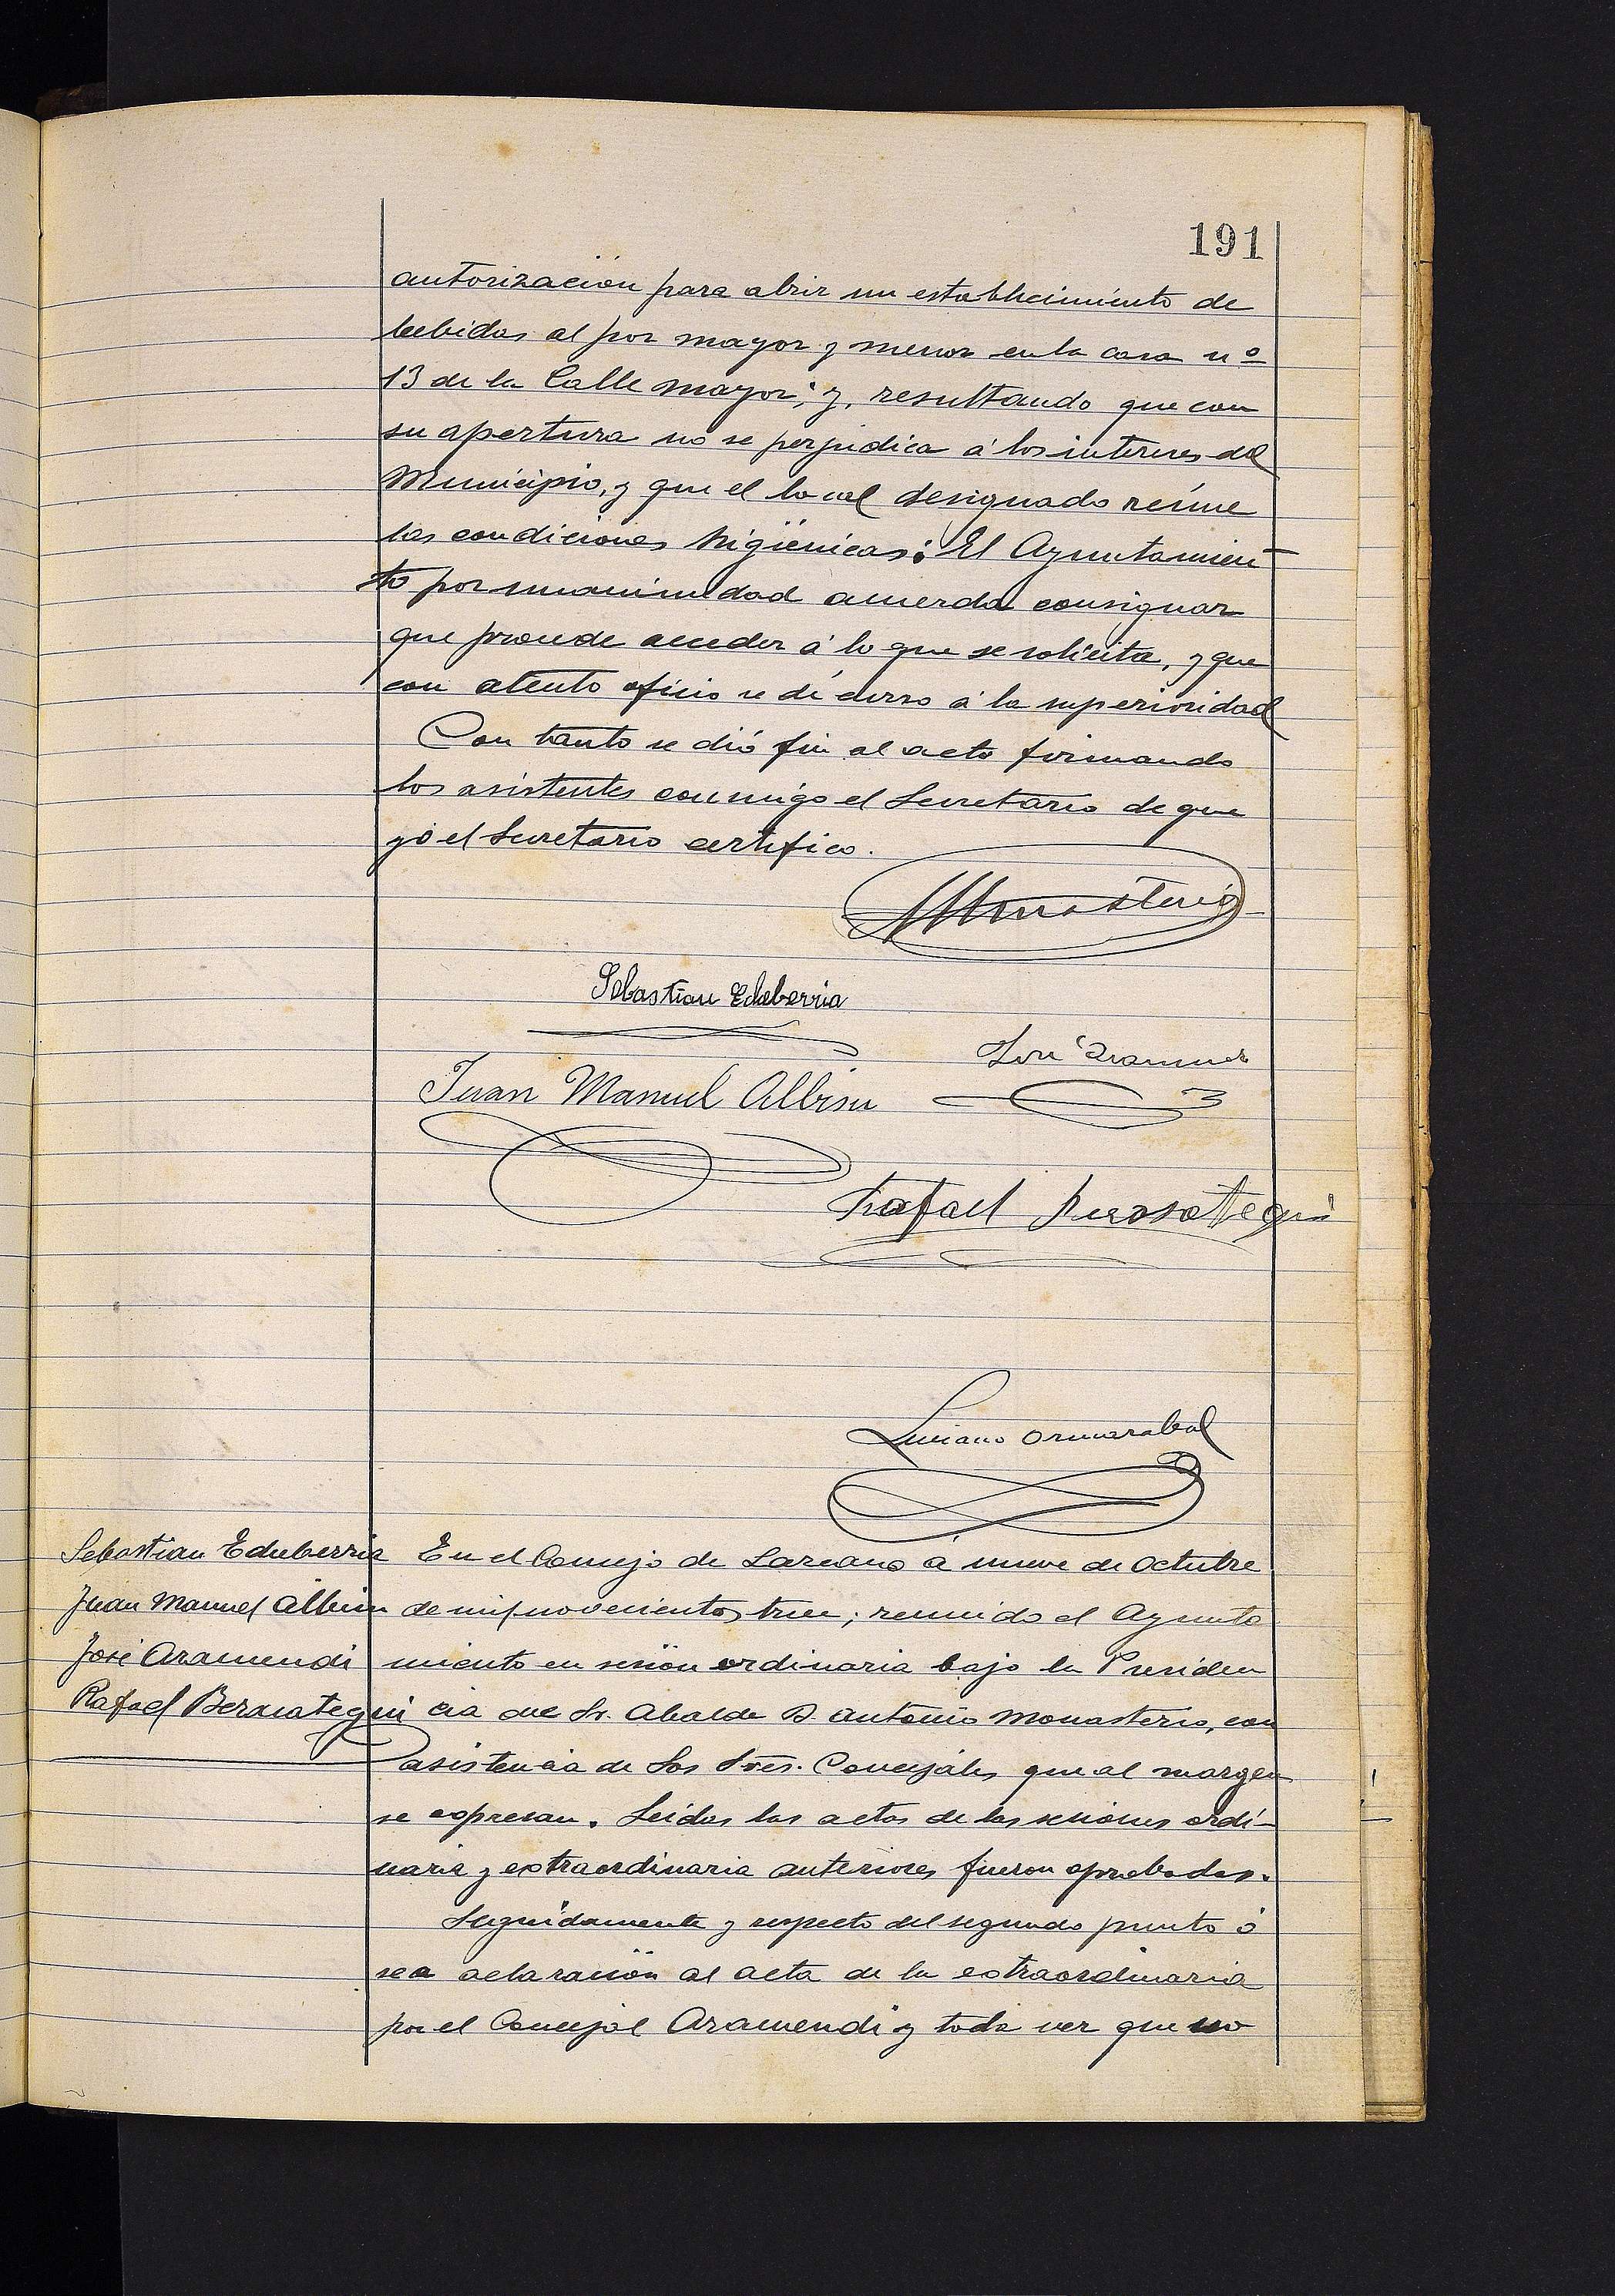 191
autorización para abrir un establecimiento de
bebidas al por mayor y menor en la casa nº
13 de la Calle mayor; y, resultando que con
su apertura no se perjudica á los intereses del
Municipio, y que el local designado reúne
las condiciones higiénicas: El Ayuntamien
to por unanimidad acuerda consignar
que procede acceder á lo que se solicita, y que
con atento oficio se dé curso á la superioridad
Con tanto se dió fin al acto firmando
los asistentes conmigo el Secretario de que
yó el Secretario certifico.
Monasterio
Sebastian Echeberria
José Aramendi
Juan Manuel Albisu
Rafael
Luciano Ormazabal
Sebastian Echeberria
Juan Manuel Albisu
José Aramendi
Rafael Bernategui
En el Concejo de Lazcano á nueve de Octubre
de mil novecientos trece; reunido el Ayunta
miento en sesión ordinaria bajo la Presiden
cia del Sr. Alcalde D. Antonio Monasterio, con
asistencia de los Sres. Concejales que al margen
se expresan. Leidas las actas de las sesiones ordi-
naria y extraordinaria anteriores fueron aprobadas.
Seguidamente y respecto del segundo punto ó
sea aclaración al acta de la extraordinaria
por el Concejal Aramendi y toda vez que no